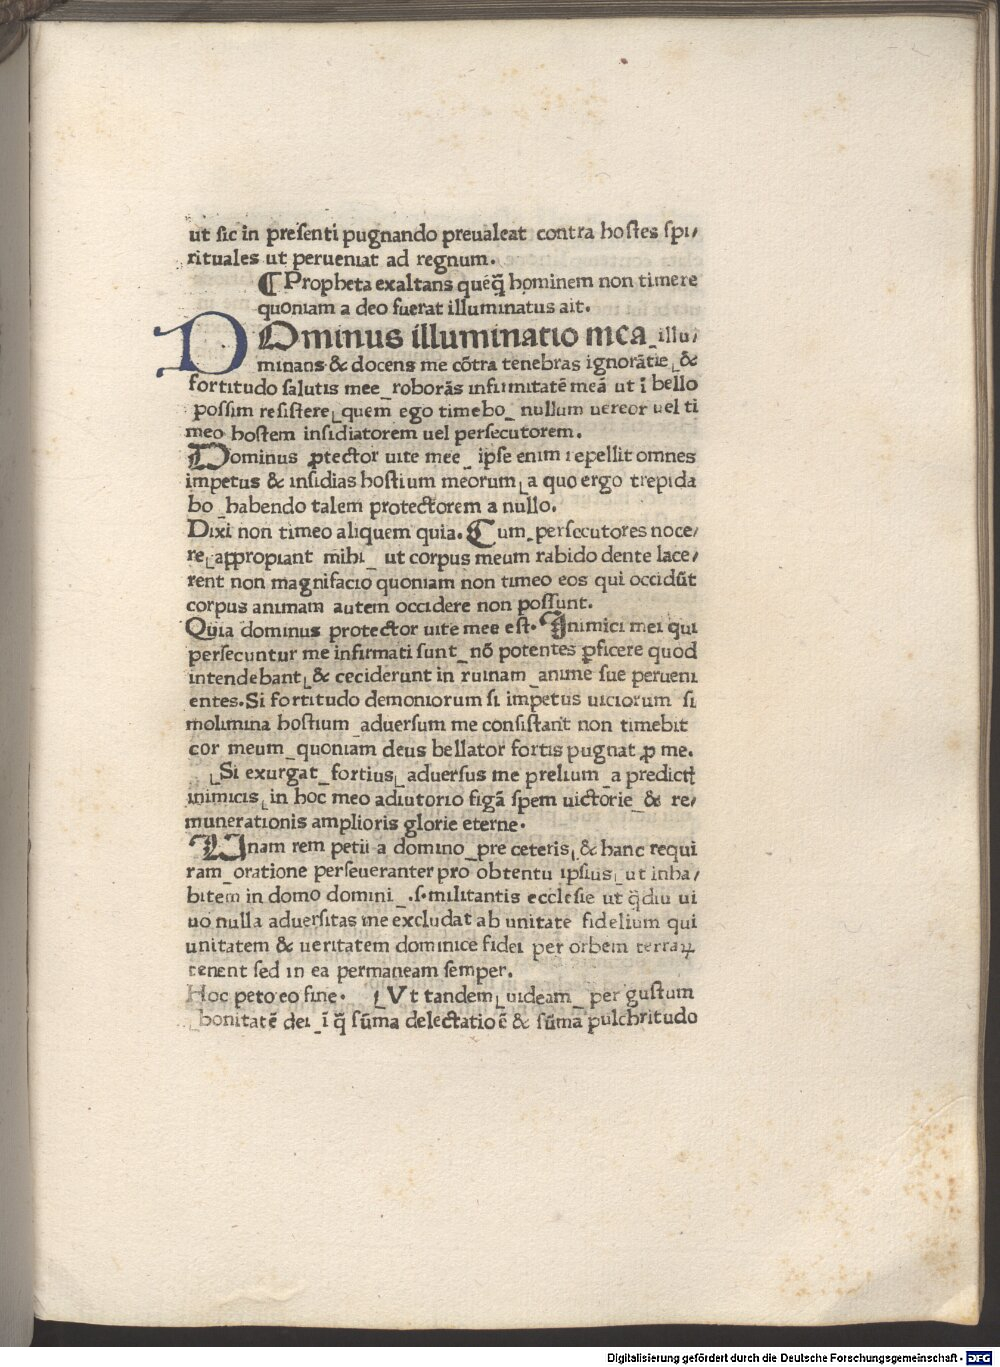 ut ſic in preſenti pugnando preualeat contra hoſtes ſpi/
rituales ut perueniat ad regnum.
¶ Propheta exaltans quēq̄ hominem non timere
quoniam a deo fuerat illuminatus ait.
DOminus illuminatio mea_illu/
minans & docens me cōtra tenebras ignorātie⌞&
fortitudo ſalutis mee_roborās infirmitatē meā ut ī bello
poſſim reſiſtere⌞quem ego timebo_nullum uereor uel ti
meo hoſtem inſidiatorem uel perſecutorem.
Dominus ꝓtector uite mee_ipſe enim repellit omnes
impetus & inſidias hoſtium meorum⌞a quo ergo trepida
bo_habendo talem protectorem a nullo.
Dixi non timeo aliquem quia. Cum_perſecutores noce/
re⌞appropiant mihi_ut corpus meum rabido dente lace/
rent non magnifacio quoniam non timeo eos qui occidūt
corpus animam autem occidere non poſſunt.
Quia dominus protector uite mee eſt. Inimici mei qui
perſecuntur me infirmati ſunt_nō potentes ꝑficere quod
intendebant⌞& ceciderunt in ruinam_anime ſue perueni
entes. Si fortitudo demoniorum ſi impetus uiciorum ſi
molimina hoſtium_aduerſum me conſiſtant non timebit
cor meum_quoniam deus bellator fortis pugnat ꝓ me.
⌞Si exurgat_fortius⌞aduerſus me prelium_a predictꝭ
inimicis⌞in hoc meo adiutorio figā ſpem uictorie_& re/
munerationis amplioris glorie eterne.
Unam rem petii a domino_pre ceteris⌞& hanc requi
ram_oratione perſeueranter pro obtentu ipſius⌞ut inha/
bitem in domo domini_.ſ. militantis eccleſie ut q̄diu ui
uo nulla aduerſitas me excludat ab unitate fidelium qui
unitatem & ueritatem dominice fidei per orbem terraꝝ
tenent ſed in ea permaneam ſemper.
Hoc peto eo fine. ⌞Vt tandem⌞uideam_per guſtum
⌞bonitatē dei_ī q̄ ſūma delectatio ē & ſūma pulchritudo
Digitalisierung gefördert durch die Deutsche Forschungsgemeinschaft - DFG